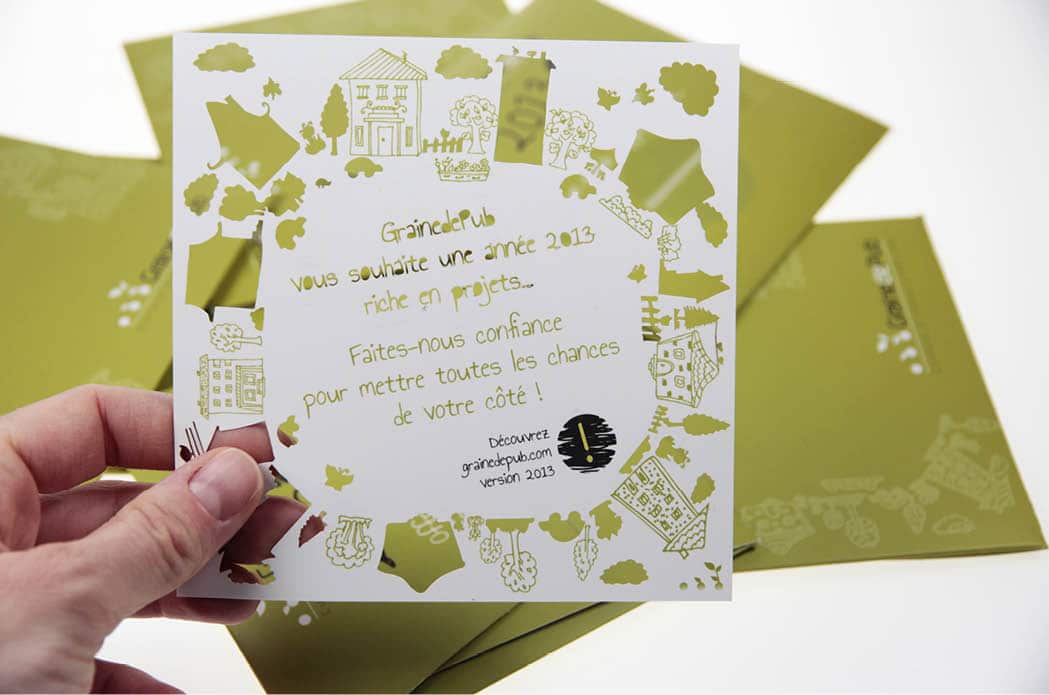 2013
GrainedePub
vous souhaite une année 2013
riche en projets...
Faites-nous confiance
pour mettre toutes les chances
de votre côté !
Découvrez
grainedepub.com
version 2013
!